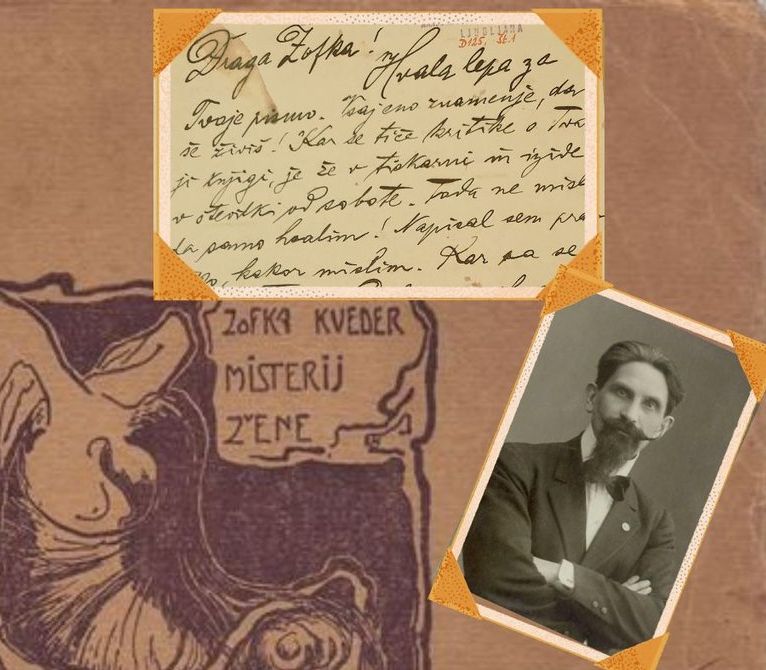 LJUBLJANA
D125, Št.1
Draga Zofka! Hvala lepa za
Tvoje pismo. Vsaj eno znamenje, da
še živiš! Kar se tiče kritike o Tvo
ji knjigi, je že v tiskarni in izide
v številki od sobote. Toda ne misli
da samo hvalim! Napisal sem pra-
vo, kakor mislim. Kar pa se
ZOFKA KVEDER
MISTERIJ
ŽENE